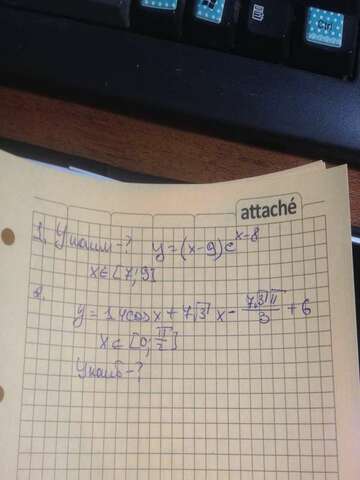 Ctrl
attaché
1. Yнаим-? y=(x-9)e^{x-8}
x∈[7;9]
2.
y=14cosx+7√3x-\frac{7√3π}{3}+6
x∈[0;\frac{π}{2}]
Yнаиб-?